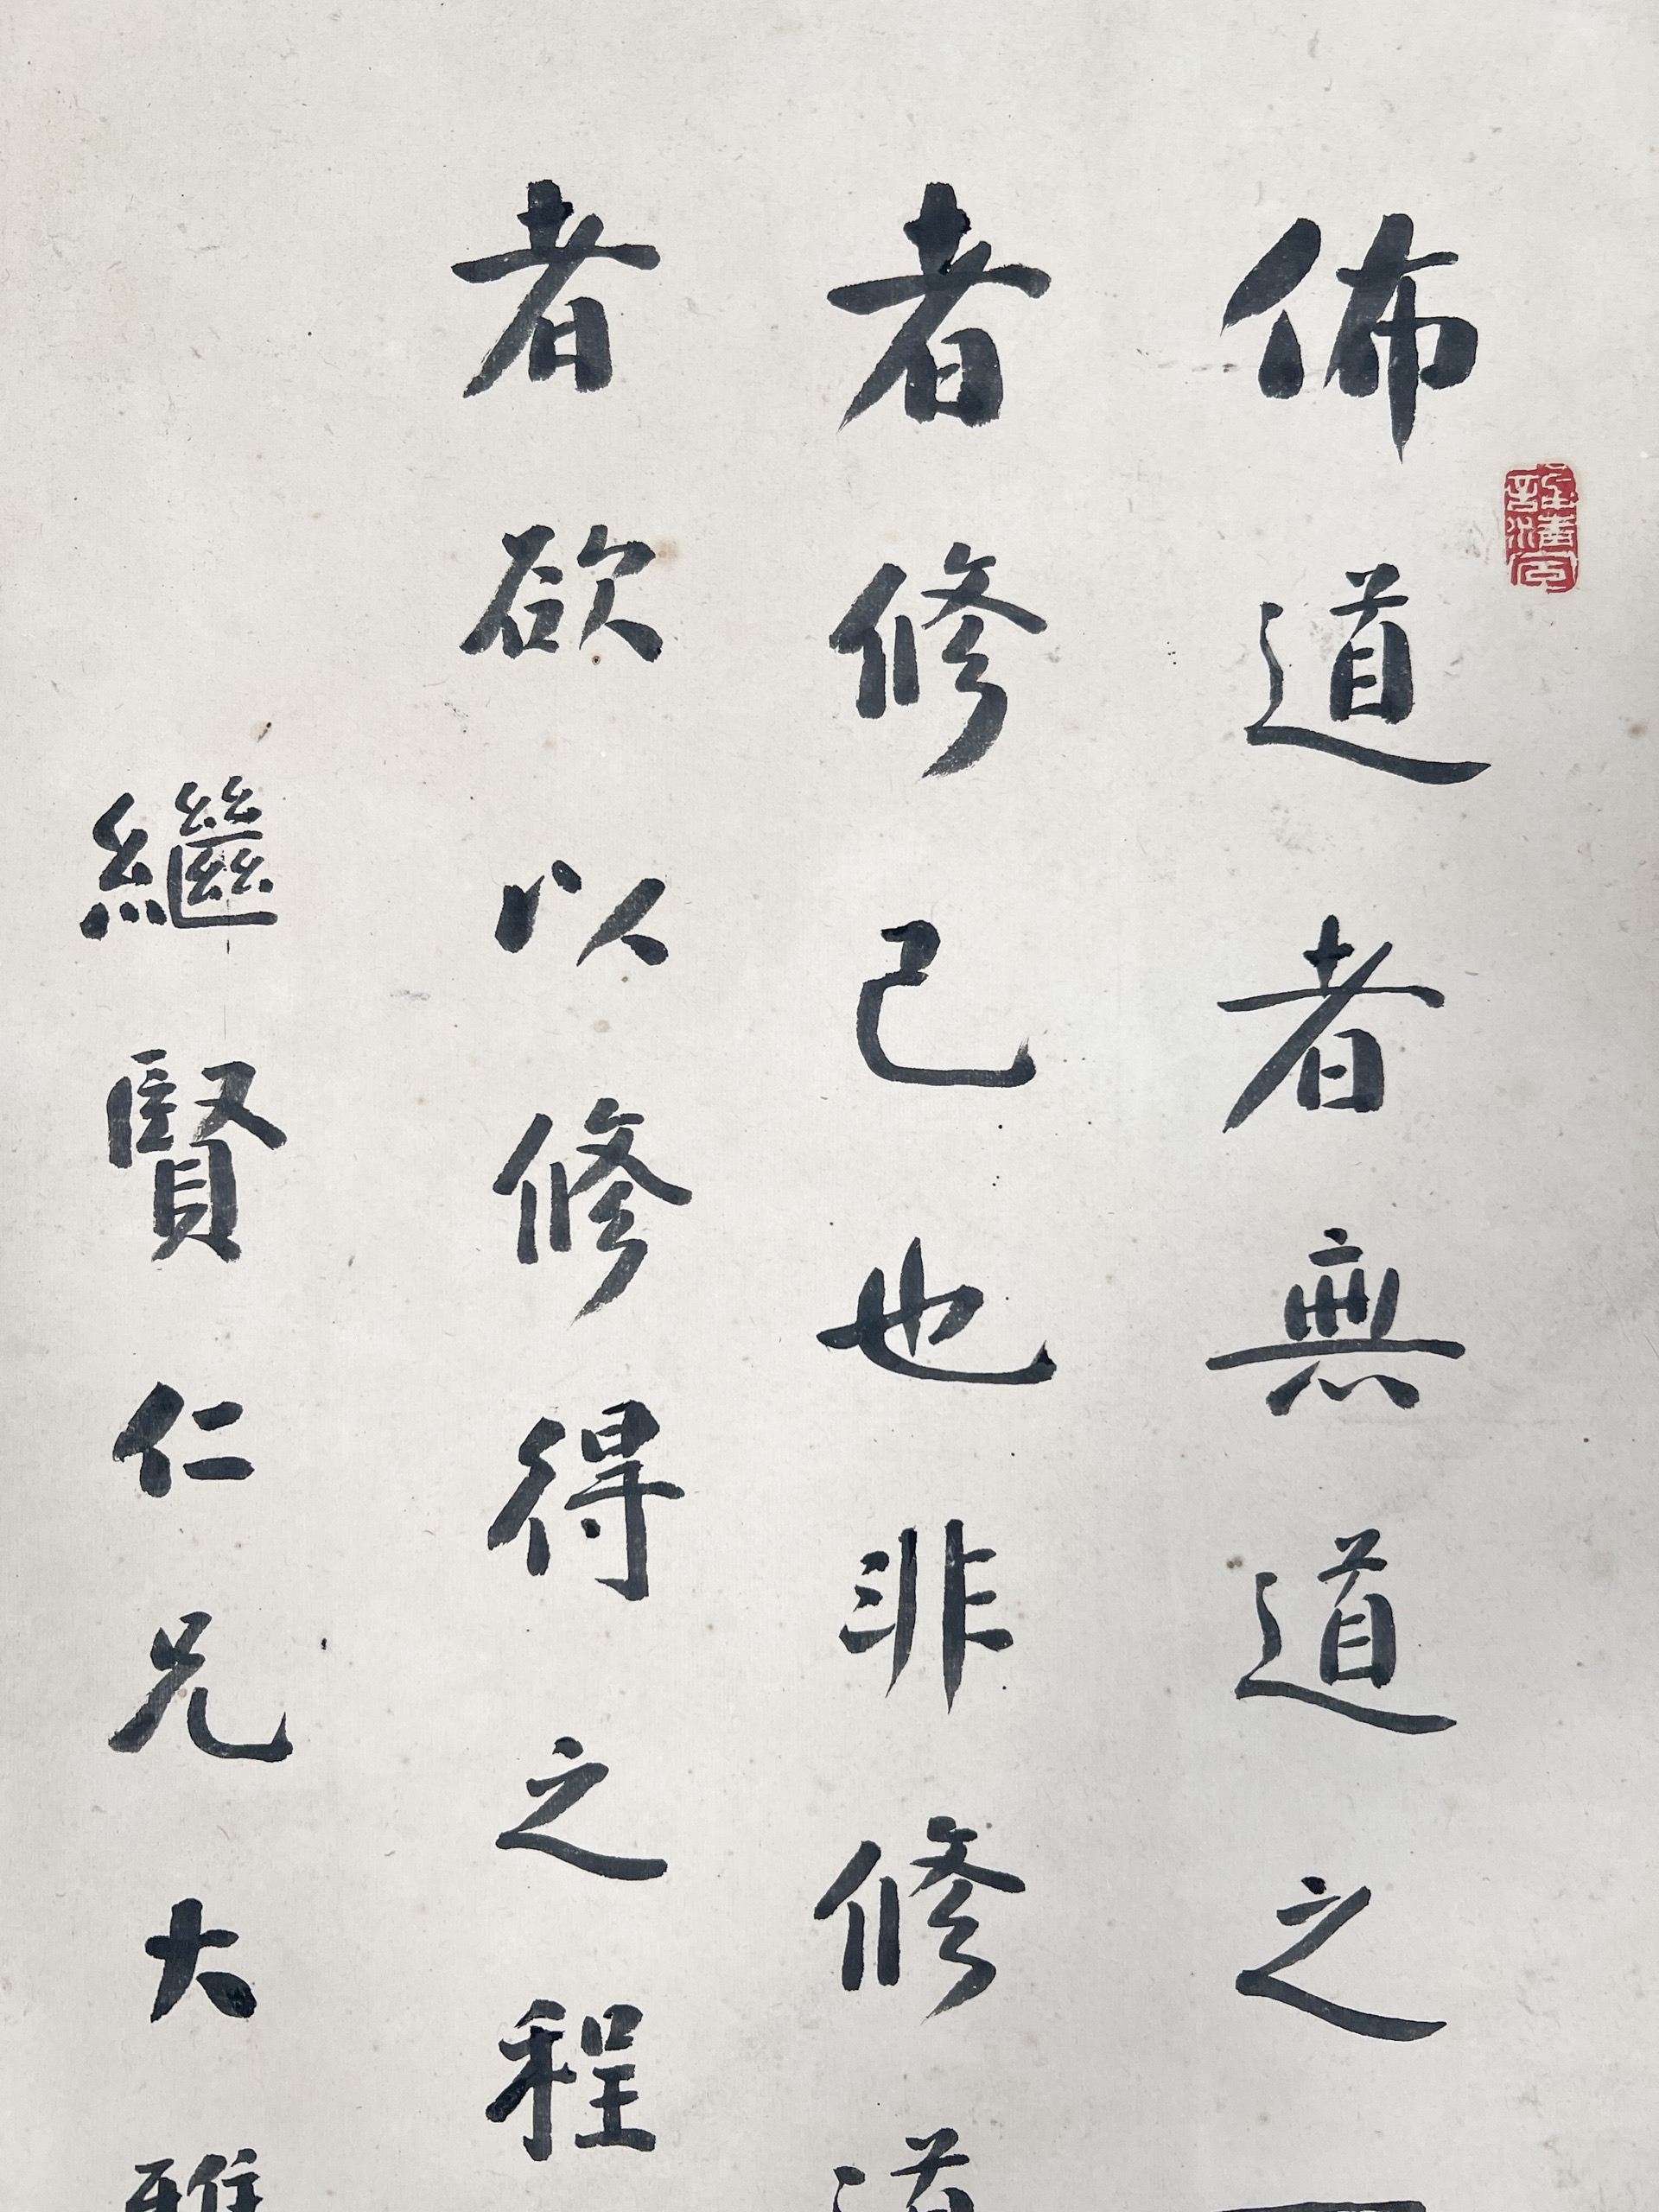 佈道者無道之
者修己也非修道
者欲以修得之程
繼賢仁兄大雅